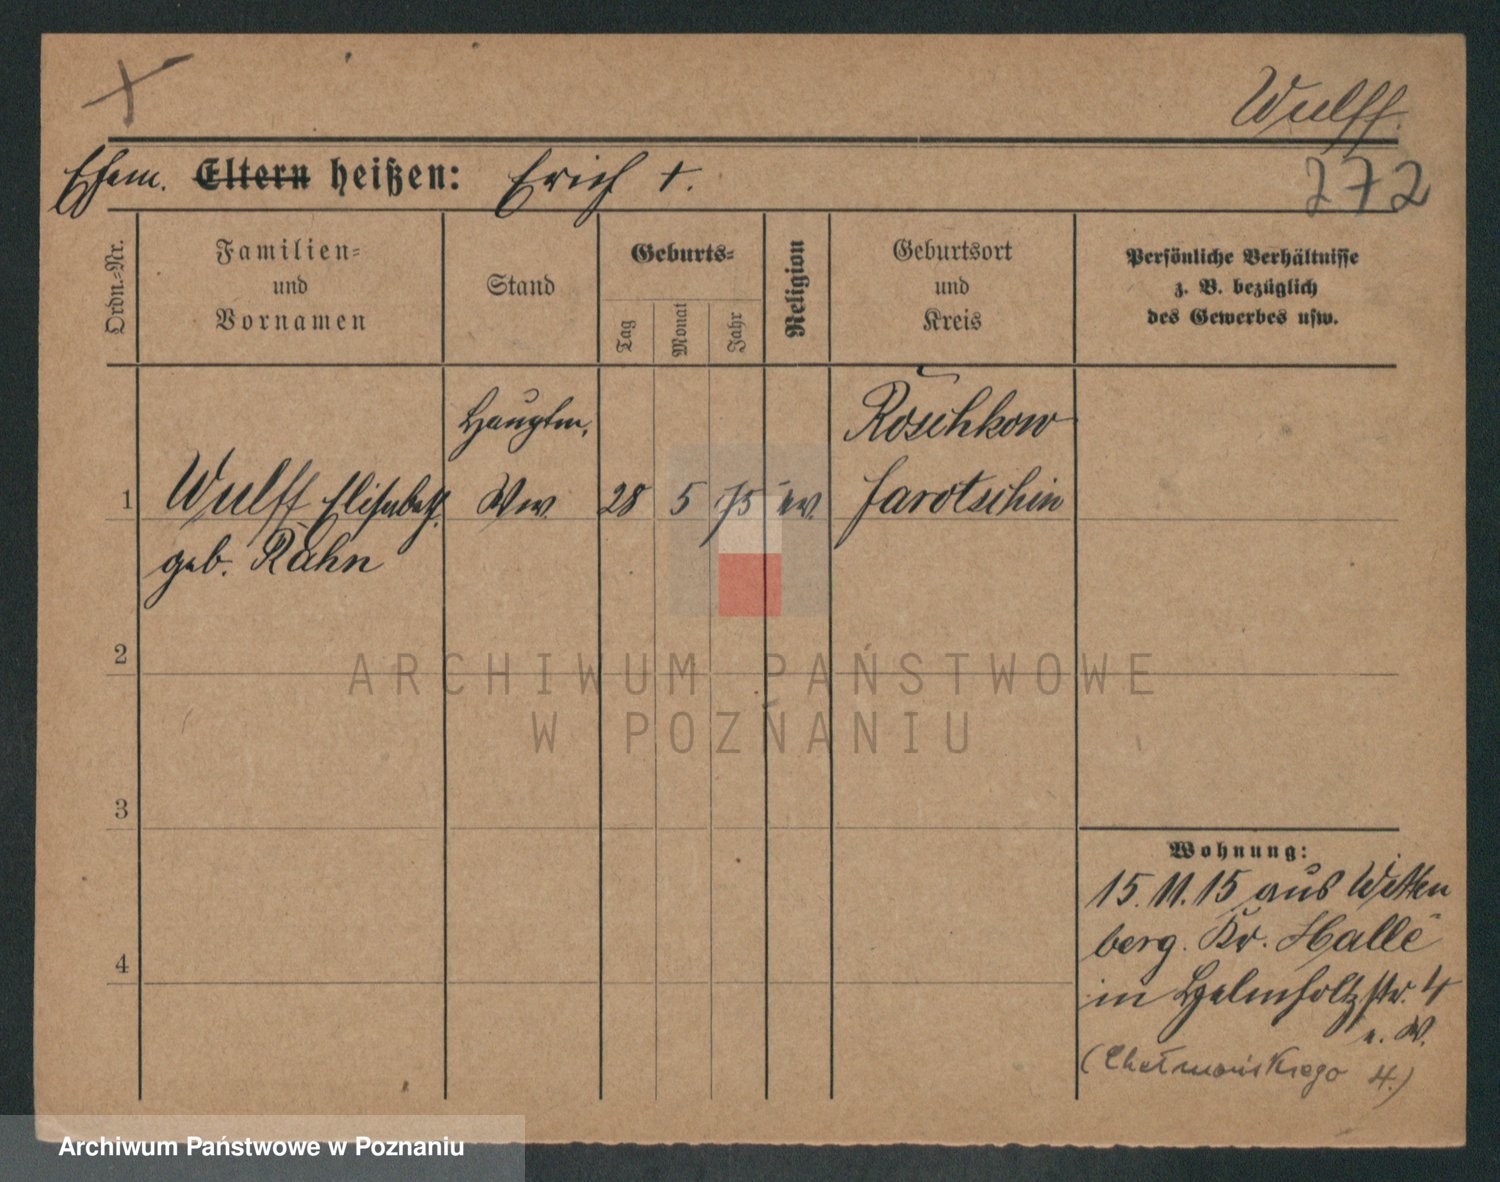 Wulff.
Ehem. Eltern heißen: Erich †.
272
Ordn.-Nr.
Familien-
und
Vornamen
Stand
Geburts-
Tag
Monat
Jahr
Religion
Geburtsort
und
Kreis
Persönliche Verhältnisse
z. B. bezüglich
des Gewerbes usw.
Hauptm.
Roschkow
1 Wulff Elisabeth Ww. 28 5 75 ev. Jarotschin
geb. Rahn
2
3
4
ARCHIWUM PAŃSTWOWE
W POZNANIU
Wohnung:
15.11.15 aus Witten
berg. Kr. Halle
in Helmholtzstr. 4
e. W.
(Chełmońskiego 4.)
Archiwum Państwowe w Poznaniu